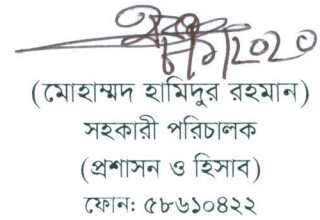 (মোহাম্মদ হামিদুর রহমান)
সহকারী পরিচালক
(প্রশাসন ও হিসাব)
ফোন: ৫৮৬১০৪২২